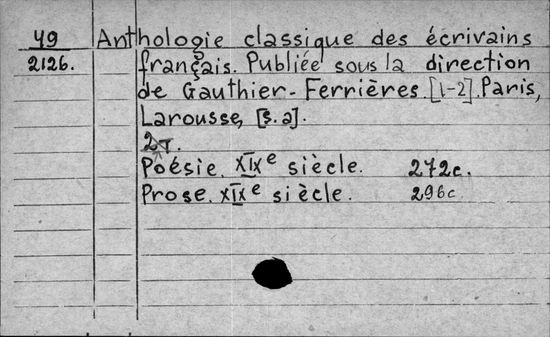 49 Anthologie classique des écrivains
2126. français. Publiée sous la direction
de Gauthier-Ferrières. [1-2]. Paris,
Larousse, [s.a].
2т.
Poésie. XIXe siècle. 272c.
Prose. XIXe siècle. 296c